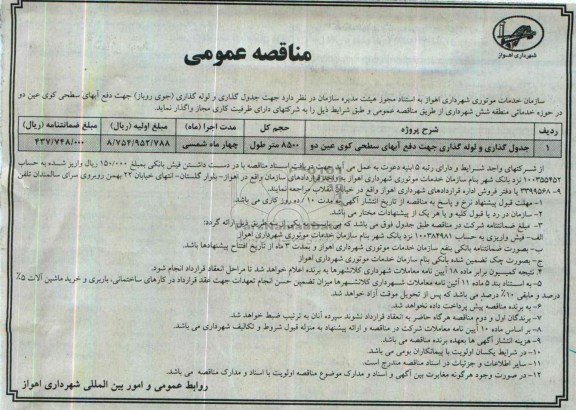 شهرداری اهواز
مناقصه عمومی
سازمان خدمات موتوری شهرداری اهواز به استناد مجوز هیئت مدیره سازمان در نظر دارد جهت جدول گذاری و لوله گذاری (جوی روباز) جهت دفع آبهای سطحی کوی عین دو
در حوزه خدماتی منطقه شش شهرداری از طریق مناقصه عمومی و طبق شرایط ذیل را به شرکتهای دارای ظرفیت کاری مجاز واگذار نماید.
ردیف شرح پروژه حجم کل مدت اجرا (ماه) مبلغ اولیه (ریال) مبلغ ضمانتنامه (ریال)
۱ جدول گذاری و لوله گذاری جهت دفع آبهای سطحی کوی عین دو ۸۵۰۰ متر طول چهار ماه شمسی ۸/۷۵۴/۹۵۲/۷۸۸ ۴۳۷/۷۴۸/۰۰۰
از شرکتهای واجد شرایط و دارای رتبه ۵ ابنیه دعوت به عمل می آید جهت دریافت اسناد مناقصه با در دست داشتن فیش بانکی بمبلغ ۱۵۰/۰۰۰ ریال واریز شده به حساب
۱۰۰۳۵۵۴۵۲ نزد بانک شهر بنام سازمان خدمات موتوری شهرداری اهواز به واحد قراردادهای سازمان واقع در اهواز- بلوار گلستان- انتهای خیابان ۲۲ بهمن روبروی سرای سالمندان تلفن
۹-۳۳۹۹۵۶۸ یا دفتر فروش اداره قراردادهای شهرداری اهواز واقع در خیابان انقلاب مراجعه نمایند.
۱- مهلت قبول پیشنهاد نرخ و پاسخ به مناقصه از تاریخ انتشار آگهی به مدت ۱۰/ ده روز کاری می باشد.
۲- سازمان در رد یا قبول کلیه و یا هر یک از پیشنهادات مختار می باشد.
۳- مبلغ ضمانتنامه شرکت در مناقصه طبق جدول فوق می باشد که می بایست به یکی از سه طریق ذیل ارائه گردد:
الف- فیش واریزی به حساب ۱۰۰۳۸۴۹۸۱ نزد بانک شهر بنام سازمان خدمات موتوری شهرداری اهواز
ب- بصورت ضمانتنامه بانکی بنفع سازمان خدمات موتوری شهرداری اهواز و بمدت ۳ ماه از تاریخ افتتاح پیشنهادها باشد.
ج- بصورت چک تضمین شده بانکی بنام سازمان خدمات موتوری شهرداری اهواز
۴- نتیجه کمیسیون برابر ماده ۱۸ آیین نامه معاملات شهرداری کلانشهرها به برنده اعلام خواهد شد تا مراحل انعقاد قرارداد انجام شود.
۵- به استناد بند ۵ ماده ۱۱ آئین نامه معاملات شهرداری کلانشهرها میزان تضمین حسن انجام تعهدات جهت عقد قرارداد در کارهای ساختمانی، باربری و خرید ماشین آلات ۵٪
درصد و مابقی ۱۰٪ درصد می باشد که پس از تحویل موقت آزاد خواهد شد.
۶- به برنده مناقصه پیش پرداخت داده نخواهد شد.
۷- برندگان اول و دوم مناقصه هرگاه حاضر به انعقاد قرارداد نشوند سپرده آنان به ترتیب ضبط خواهد شد.
۸- بر اساس ماده ۱۰ آیین نامه معاملات شرکت در مناقصه و ارائه پیشنهاد به منزله قبول شروط و تکالیف شهرداری می باشد.
۹- هزینه انتشار آگهی ها بعهده برنده مناقصه می باشد.
۱۰- در شرایط یکسان اولویت با پیمانکاران بومی می باشد.
۱۱- سایر اطلاعات و جزئیات در اسناد مناقصه مندرج است.
۱۲- در صورت وجود هرگونه مغایرت بین آگهی و اسناد و مدارک موضوع مناقصه اولویت با اسناد و مدارک مناقصه می باشد.
روابط عمومی و امور بین المللی شهرداری اهواز